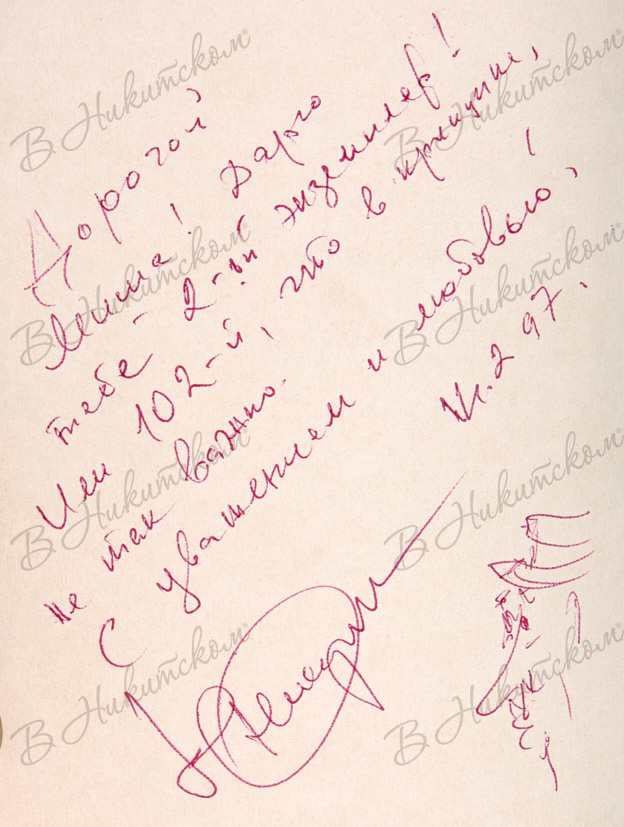 Дорогой
Миша! Дарю
тебе - 2-ой экземпляр!
Или 102-й, что в принципе,
не так важно.
С уважением и любовью!
97.
В Никитском
В Никитском
В Никитском
В Никитском
В Никитском
В Никитском
В Никитском
В Никитском